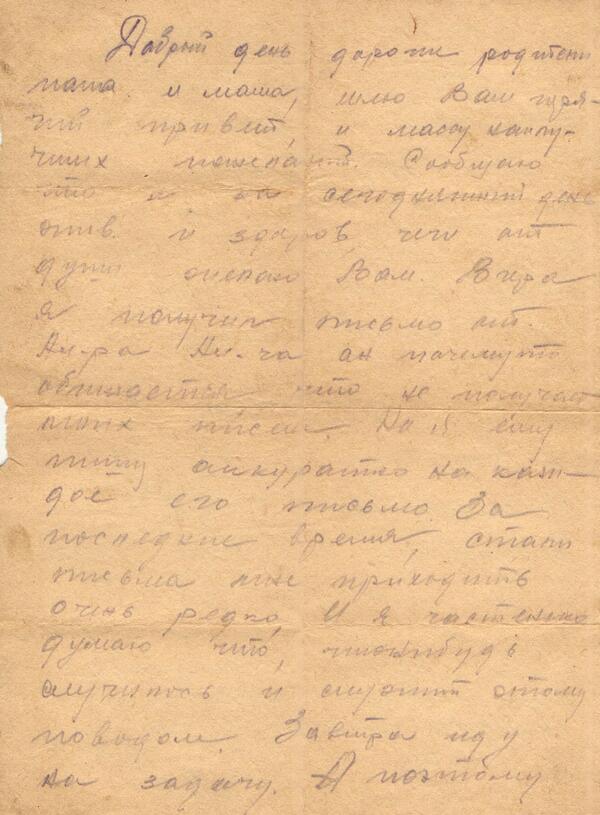 Добрый день дорогие родители
папа и мама, шлю Вам горя-
чий привет, и массу наилу-
чших пожеланий. Сообщаю
что я на сегодняшний день
жив и здоров, чего от
души желаю Вам. Вчера
я получил письмо от
он почемуто
обижается что не получает
моих писем. Но я ему
пишу аккуратно на каж-
дое его письмо За
последние время, стали
письма мне приходить
очень редко, И я частенько
думаю что,
случилось и служит этому
поводом. Завтра иду
на задачу. А поэтому